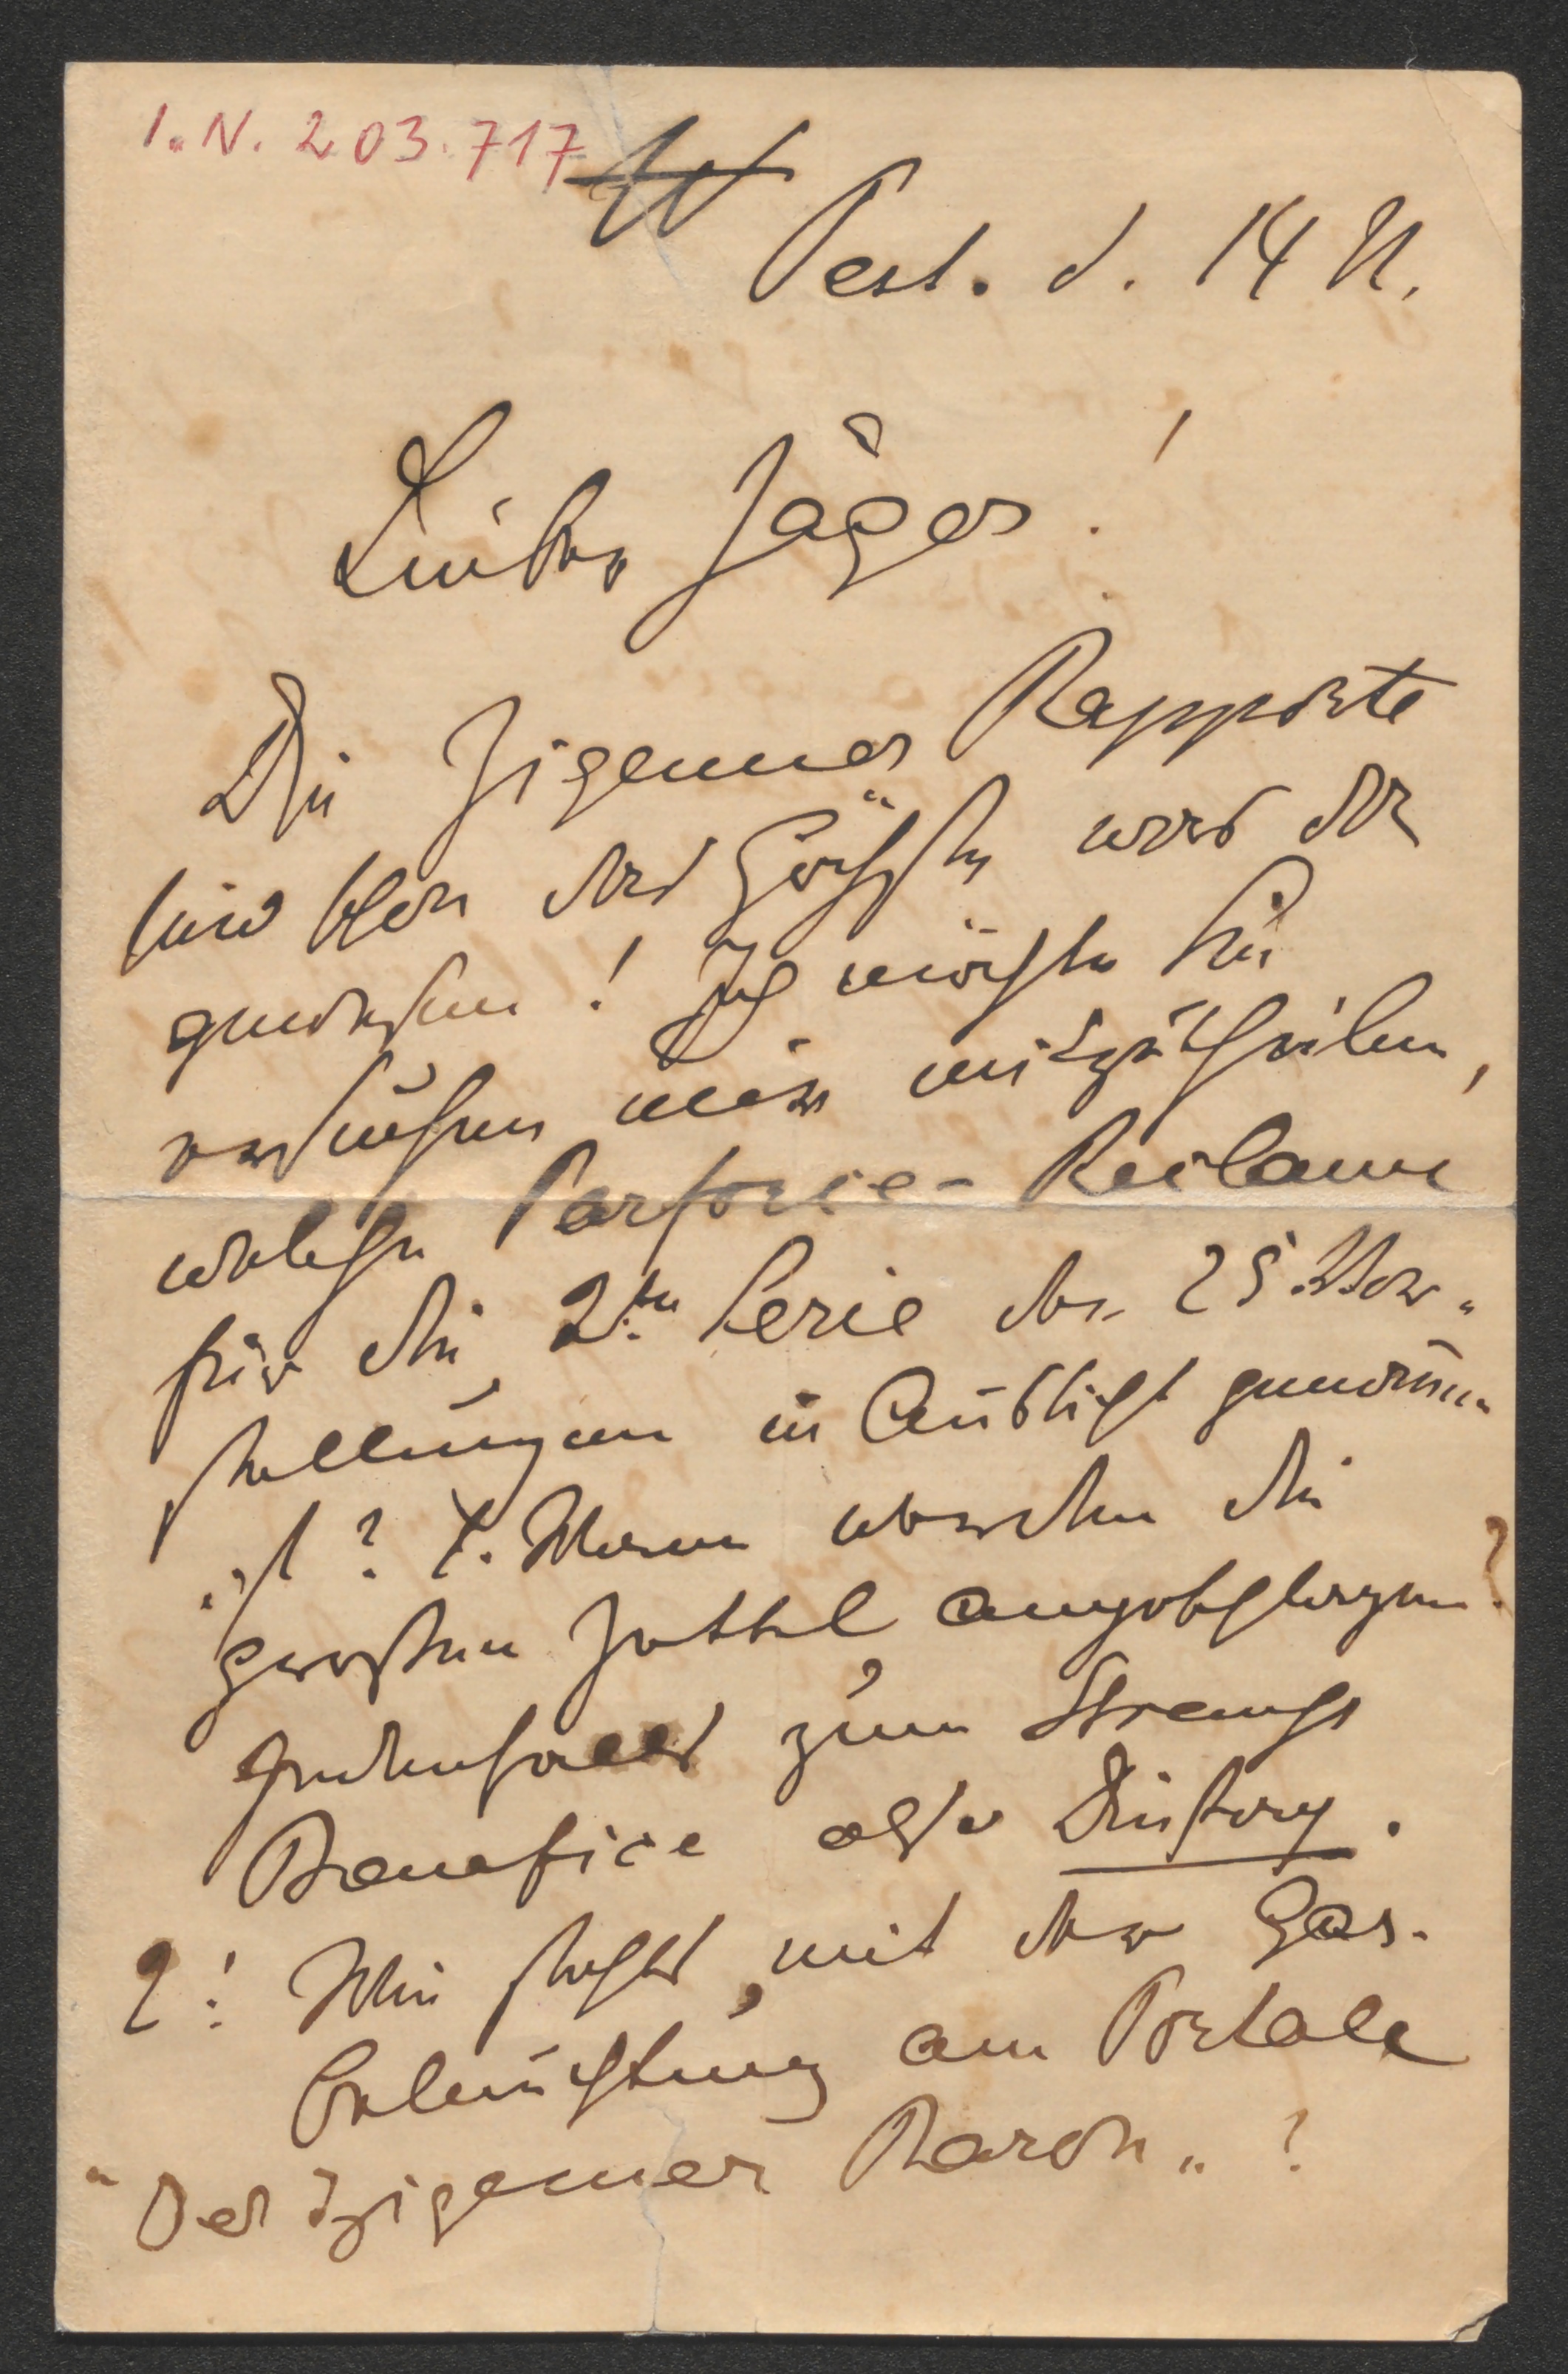 I.N. 203.717
Pest. d. 14 N.
Lieber Jäger!
Die Zigeuner Rapporte
sind das Höchste was da
gewesen! Ich möchte Sie
ersuchen mir mitzutheilen,
welche Parforce-Reclame
für die 2te Serie der 25 Vor-
stellungen in Aussicht genommen
ist? 1. Wann werden die
großen Zettel angeschlagen?
jedenfalls zum Strauss
Benefice also Dienstag.
2! Wie stehts mit der Gas-
beleuchtung am Portale
"Der Zigeuner Baron"?